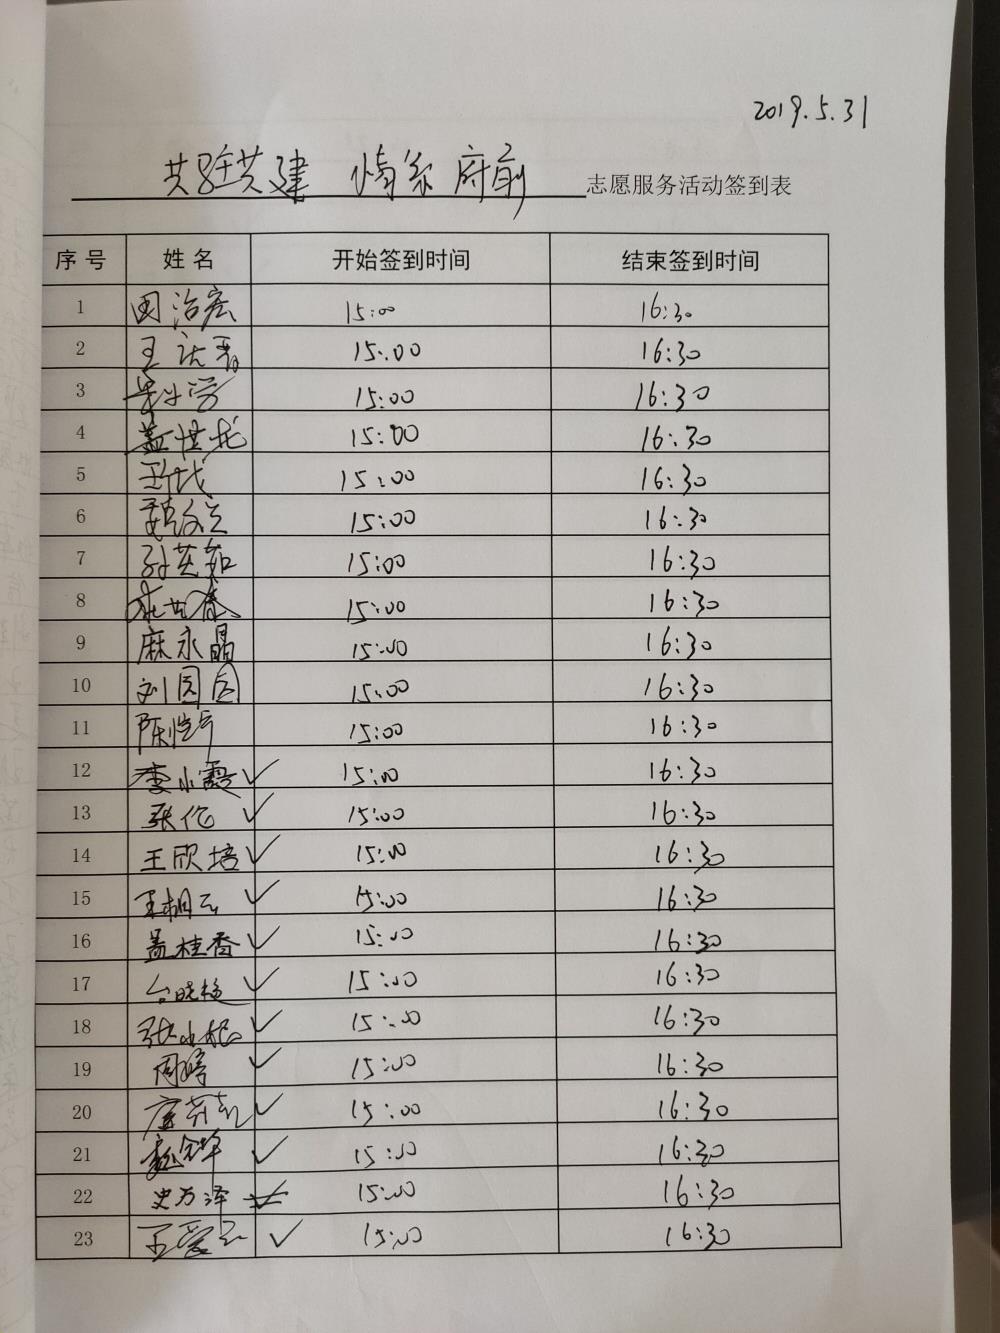 2019.5.31
共驻共建 情系府前 志愿服务活动签到表
序号 姓名 开始签到时间 结束签到时间
1 田治宏 15:00 16:30
2 王 15:00 16:30
3 15:00 16:30
4 盖世龙 15:00 16:30
5 15:00 16:30
6 15:00 16:30
7 孙英知 15:00 16:30
8 15:00 16:30
9 麻永晶 15:00 16:30
10 刘园园 15:00 16:30
11 陈 15:00 16:30
12 李小霞 ✓ 15:00 16:30
13 张伦 ✓ 15:00 16:30
14 王欣培 ✓ 15:00 16:30
15 ✓ 15:00 16:30
16 盖桂香 ✓ 15:00 16:30
17 ✓ 15:00 16:30
18 张小根 ✓ 15:00 16:30
19 周婷 ✓ 15:00 16:30
20 ✓ 15:00 16:30
21 ✓ 15:00 16:30
22 史万泽 15:00 16:30
23 王爱云 ✓ 15:00 16:30